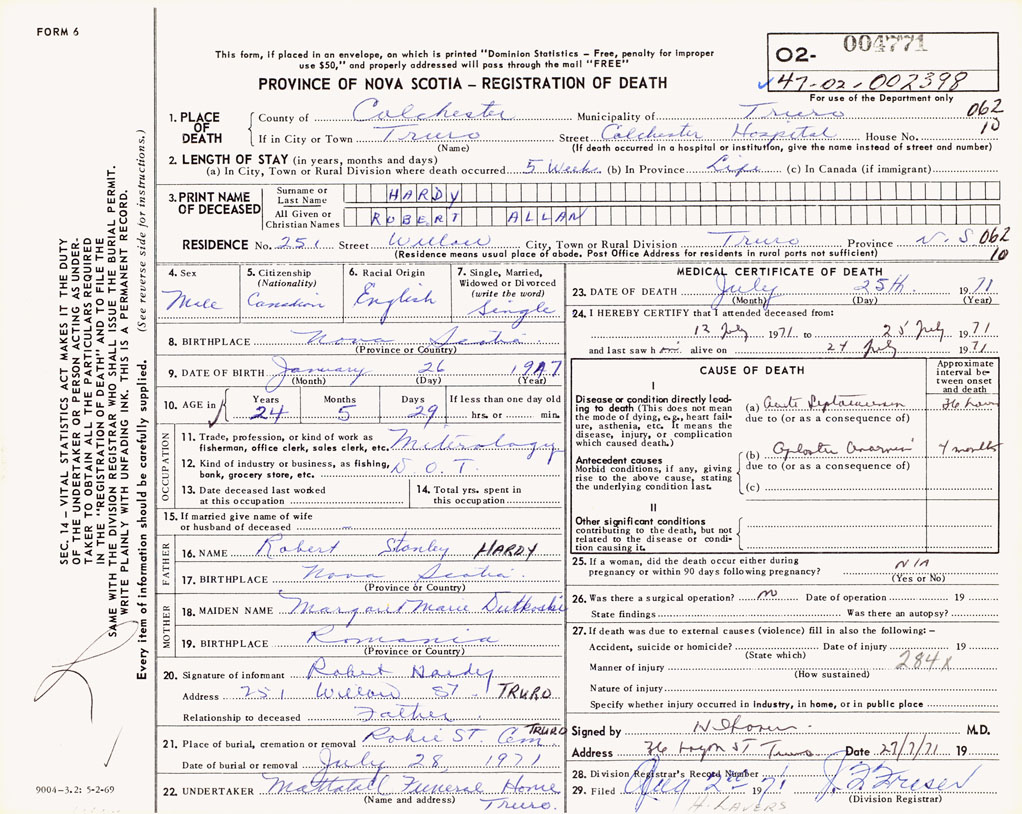 FORM 6
This form, if placed in an envelope, on which is printed "Dominion Statistics – Free, penalty for improper
use $50," and properly addressed will pass through the mail "FREE"
PROVINCE OF NOVA SCOTIA – REGISTRATION OF DEATH
02- 004771
47-02-002398
For use of the Department only
1. PLACE OF DEATH
County of Colchester Municipality of Truro 062
If in City or Town Truro Street Colchester Hospital House No. 10
(Name) (If death occurred in a hospital or institution, give the name instead of street and number)
2. LENGTH OF STAY (in years, months and days)
(a) In City, Town or Rural Division where death occurred 5 Weeks (b) In Province Life (c) In Canada (if immigrant)
3. PRINT NAME OF DECEASED
Surname or Last Name HARDY
All Given or Christian Names ROBERT ALLAN
RESIDENCE No. 251 Street Willow City, Town or Rural Division Truro Province N.S 062
(Residence means usual place of abode. Post Office Address for residents in rural parts not sufficient) 10
4. Sex
Male
5. Citizenship
(Nationality)
Canadian
6. Racial Origin
English
7. Single, Married,
Widowed or Divorced
(write the word)
Single
8. BIRTHPLACE Nova Scotia
(Province or Country)
9. DATE OF BIRTH January 26 1947
(Month) (Day) (Year)
10. AGE in
Years Months Days If less than one day old
24 5 29 hrs. or min.
OCCUPATION
11. Trade, profession, or kind of work as
fisherman, office clerk, sales clerk, etc. Meterology
12. Kind of industry or business, as fishing,
bank, grocery store, etc. D.O.T.
13. Date deceased last worked
at this occupation
14. Total yrs. spent in
this occupation
15. If married give name of wife
or husband of deceased —
FATHER
16. NAME Robert Stanley HARDY
17. BIRTHPLACE Nova Scotia
(Province or Country)
MOTHER
18. MAIDEN NAME Margaret Marie Dutkoski
19. BIRTHPLACE Romania
(Province or Country)
20. Signature of informant Robert Hardy
Address 251 Willow St TRURO
Relationship to deceased Father
21. Place of burial, cremation or removal Robie St. Cem TRURO
Date of burial or removal July 28, 1971
22. UNDERTAKER Mattatall Funeral Home
(Name and address) Truro.
MEDICAL CERTIFICATE OF DEATH
23. DATE OF DEATH July 25th 1971
(Month) (Day) (Year)
24. I HEREBY CERTIFY that I attended deceased from:
12 July 1971 to 25 July 1971
and last saw h im alive on 24 July 1971
CAUSE OF DEATH
Approximate
interval be-
tween onset
and death
I
Disease or condition directly lead-
ing to death (This does not mean
the mode of dying, e.g., heart fail-
ure, asthenia, etc. It means the
disease, injury, or complication
which caused death.)
(a) Acute 36 hours
due to (or as a consequence of)
Antecedent causes
Morbid conditions, if any, giving
rise to the above cause, stating
the underlying condition last.
(b) Aplastic Anaemia 7 months
due to (or as a consequence of)
(c)
II
Other significant conditions
contributing to the death, but not
related to the disease or condi-
tion causing it.
25. If a woman, did the death occur either during
pregnancy or within 90 days following pregnancy? N/A
(Yes or No)
26. Was there a surgical operation? no Date of operation 19
State findings Was there an autopsy?
27. If death was due to external causes (violence) fill in also the following: –
Accident, suicide or homicide? Date of injury 19
(State which) 284x
Manner of injury
(How sustained)
Nature of injury
Specify whether injury occurred in industry, in home, or in public place
Signed by M.D.
Address 36 ST Truro Date 27/7/71 19
28. Division Registrar's Record Number
29. Filed Aug 2nd 1971
(Division Registrar)
H. LAVERS
SEC. 14 – VITAL STATISTICS ACT MAKES IT THE DUTY
OF THE UNDERTAKER OR PERSON ACTING AS UNDER-
TAKER TO OBTAIN ALL THE PARTICULARS REQUIRED
IN THE "REGISTRATION OF DEATH" AND TO FILE THE
SAME WITH THE DIVISION REGISTRAR WHO SHALL ISSUE THE BURIAL PERMIT.
WRITE PLAINLY WITH UNFADING INK. THIS IS A PERMANENT RECORD.
Every item of information should be carefully supplied. (See reverse side for instructions.)
9004-3.2: 5-2-69